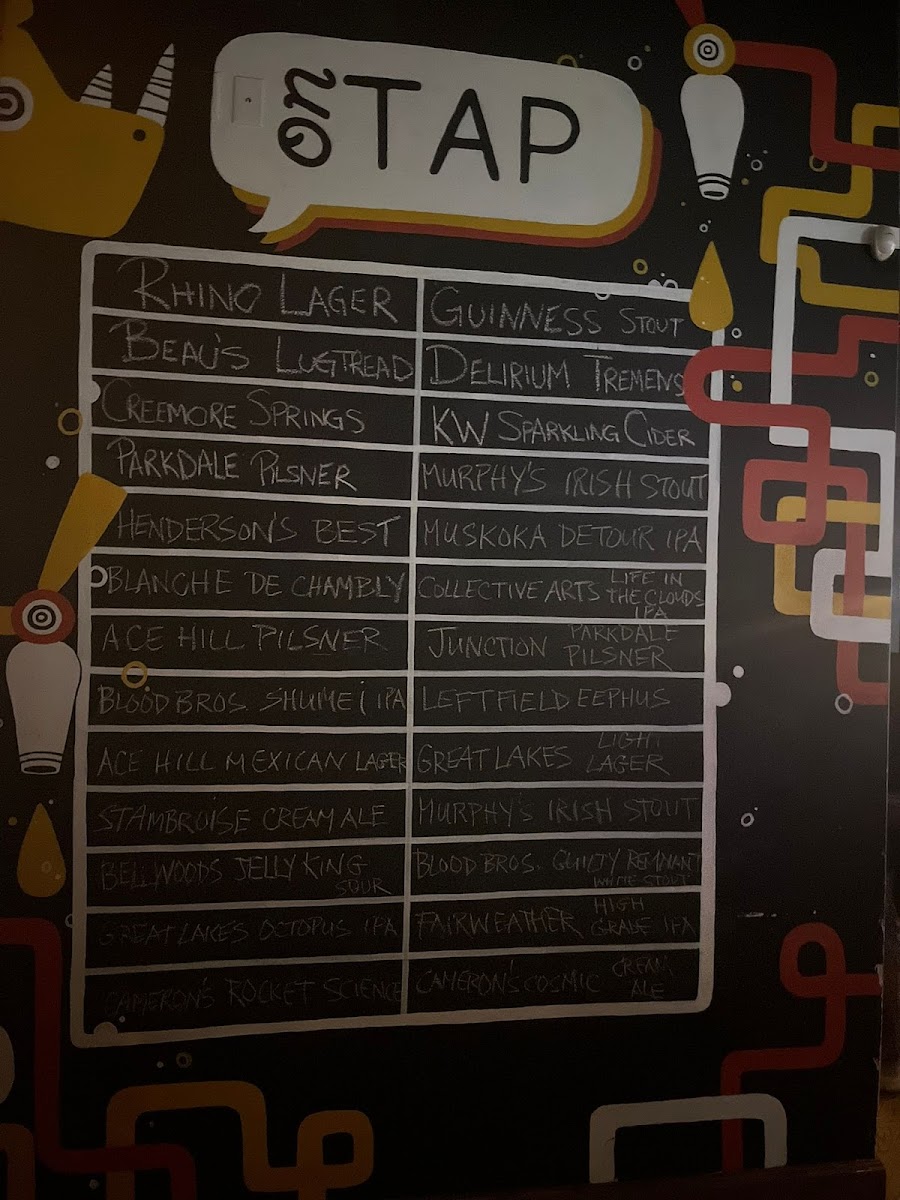 on TAP
RHINO LAGER
BEAU'S LUGTREAD
CREEMORE SPRINGS
PARKDALE PILSNER
HENDERSON'S BEST
BLANCHE DE CHAMBLY
ACE HILL PILSNER
BLOOD BROS. SHUMEi IPA
ACE HILL MEXICAN LAGER
STAMBROISE CREAM ALE
BELLWOODS JELLY KING
SOUR
GREAT LAKES OCTOPUS IPA
CAMERON'S ROCKET SCIENCE
GUINNESS STOUT
DELIRIUM TREMENS
KW SPARKLING CIDER
MURPHY'S IRISH STOUT
MUSKOKA DETOUR IPA
COLLECTIVE ARTS LIFE IN
THE CLOUDS
IPA
JUNCTION PARKDALE
PILSNER
LEFTFIELD EEPHUS
GREAT LAKES LIGHT
LAGER
MURPHY'S IRISH STOUT
BLOOD BROS. GUILTY REMNANT
WHITE STOUT
FAIRWEATHER HIGH
GRADE IPA
CAMERON'S COSMIC CREAM
ALE